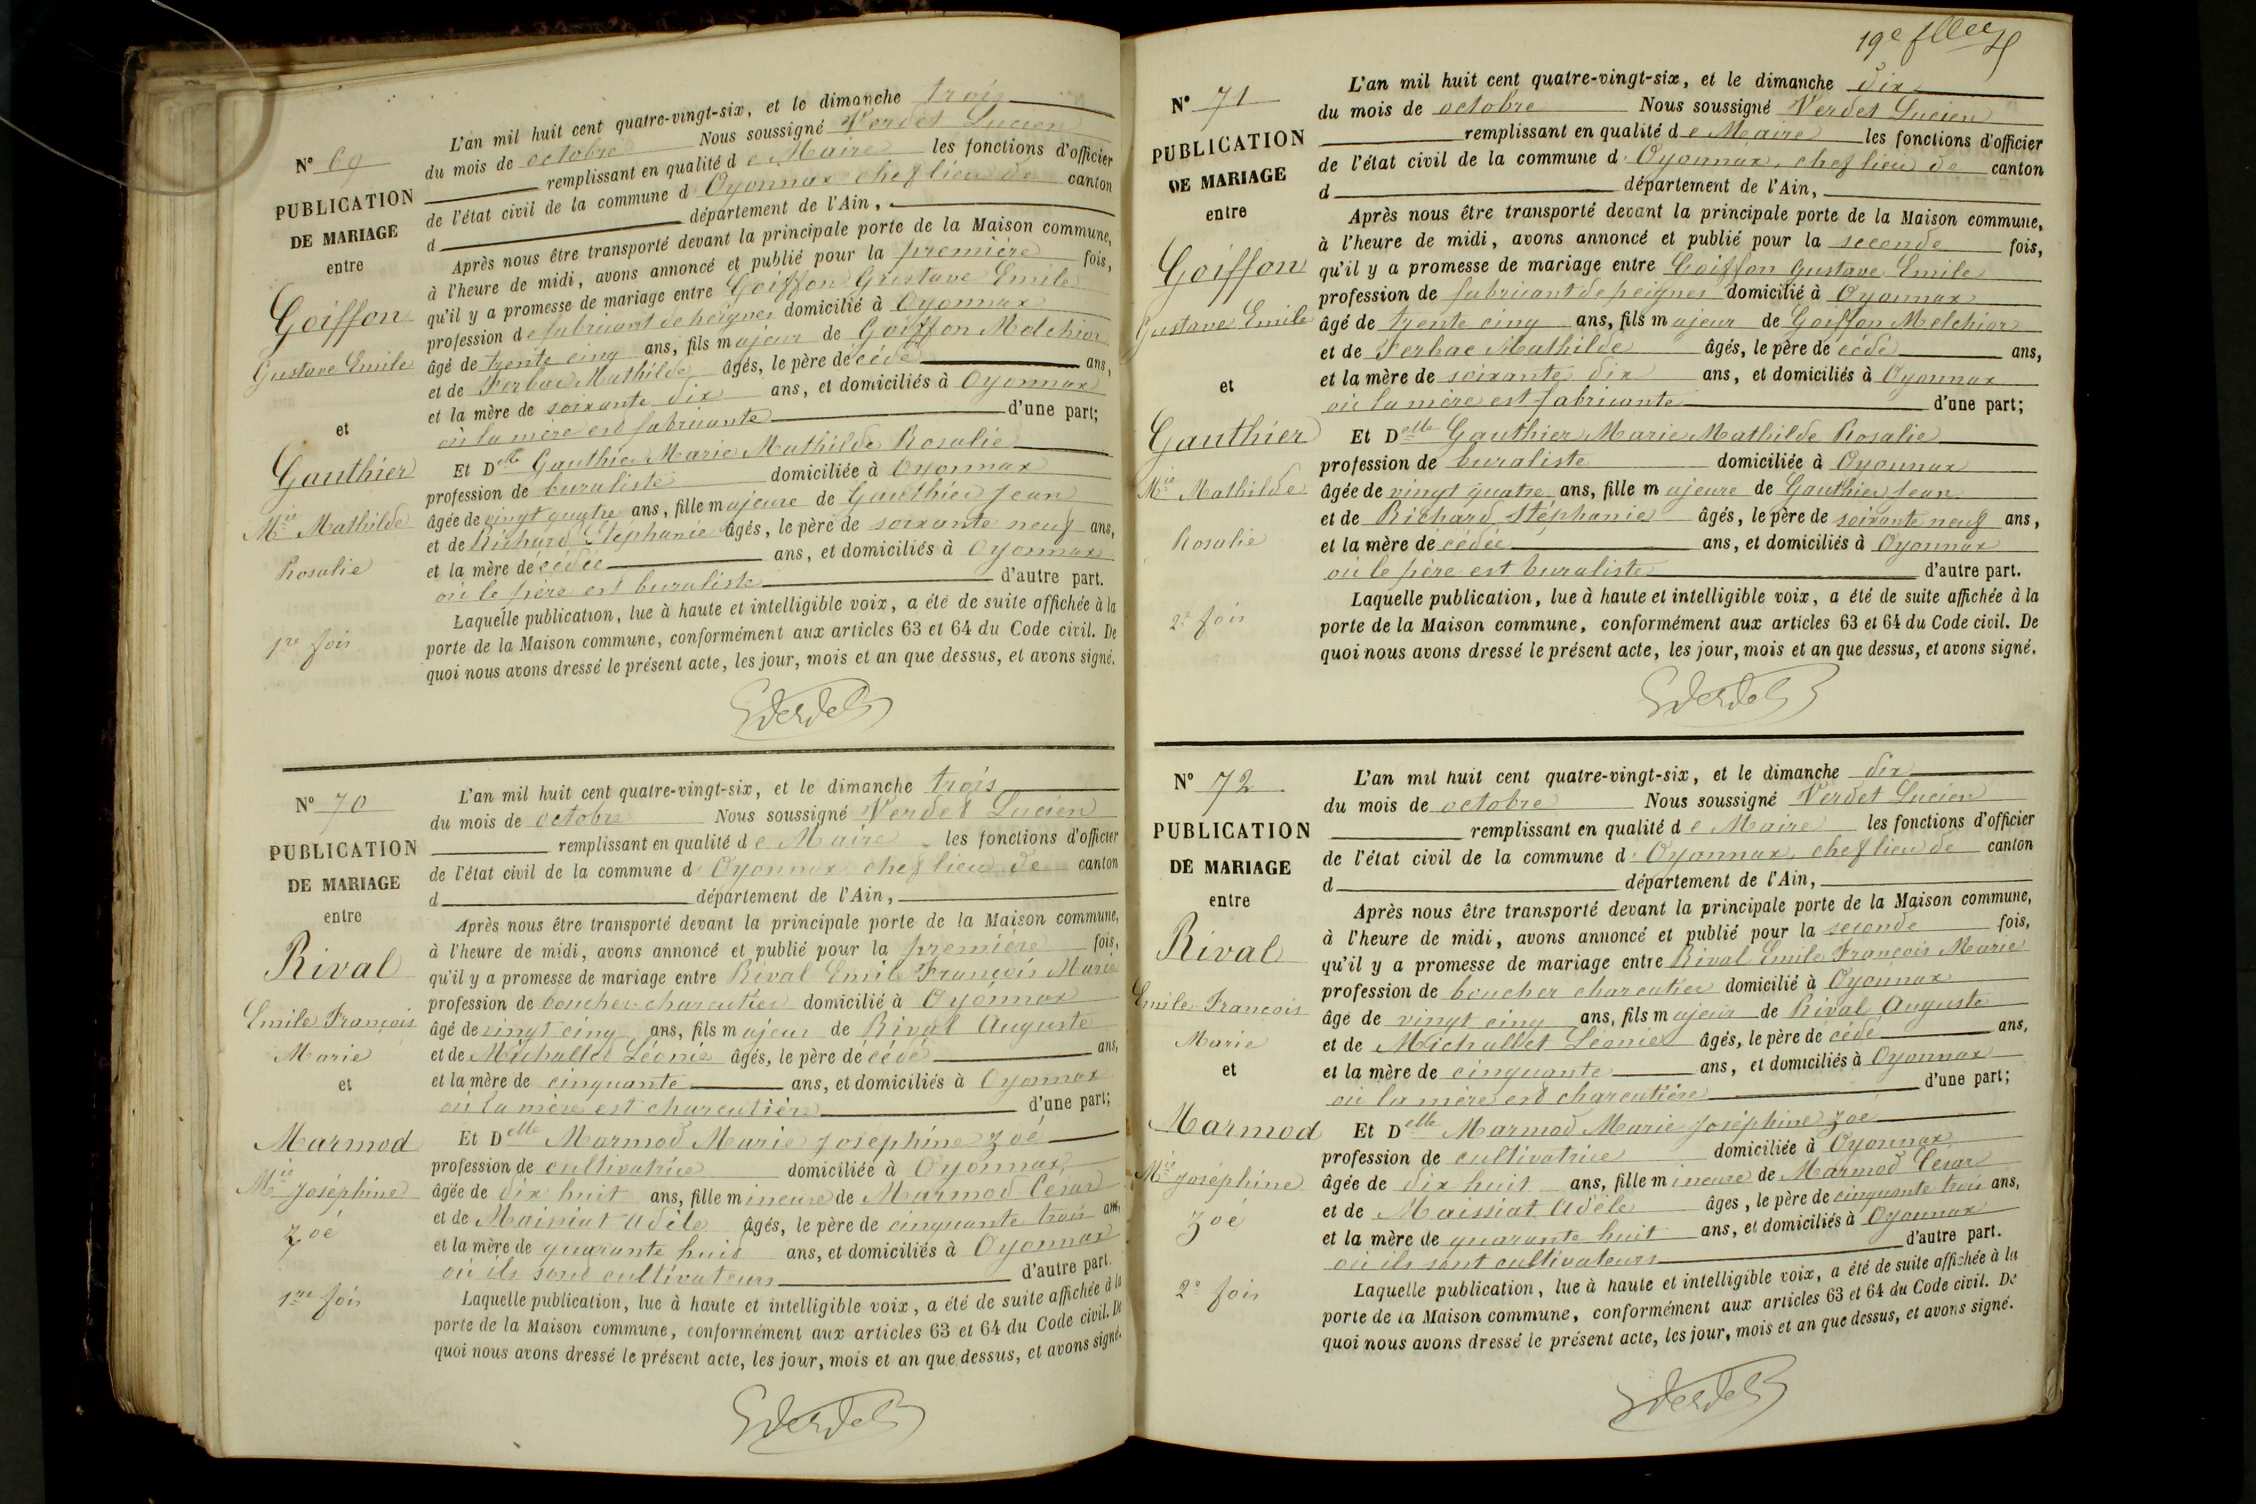 N° 69
PUBLICATION
DE MARIAGE
entre
Goiffon
Gustave Emile
et
Gauthier
Mie Mathilde
Rosalie
1re fois
L'an mil huit cent quatre-vingt-six, et le dimanche trois
du mois de octobre Nous soussigné Verdet Lucien
remplissant en qualité de Maire les fonctions d'officier
de l'état civil de la commune d Oyonnax chef lieu de canton
d département de l'Ain,
Après nous être transporté devant la principale porte de la Maison commune,
à l'heure de midi, avons annoncé et publié pour la première fois,
qu'il y a promesse de mariage entre Goiffon Gustave Emile
profession de fabricant de peignes domicilié à Oyonnax
âgé de trente cinq ans, fils majeur de Goiffon Melchior
et de Ferbac Mathilde âgés, le père décédé ans,
et la mère de soixante dix ans, et domiciliés à Oyonnax
où la mère est fabricante d'une part;
Et Delle Gauthier Marie Mathilde Rosalie
profession de buraliste domiciliée à Oyonnax
âgée de vingt quatre ans, fille majeure de Gauthier Jean
et de Richard Stéphanie âgés, le père de soixante neuf ans,
et la mère décédée ans, et domiciliés à Oyonnax
où le père est buraliste d'autre part.
Laquelle publication, lue à haute et intelligible voix, a été de suite affichée à la
porte de la Maison commune, conformément aux articles 63 et 64 du Code civil. De
quoi nous avons dressé le présent acte, les jour, mois et an que dessus, et avons signé.
Verdet
N° 70
PUBLICATION
DE MARIAGE
entre
Rival
Emile François
Marie
et
Marmod
Mie Joséphine
Zoé
1re fois
L'an mil huit cent quatre-vingt-six, et le dimanche trois
du mois de octobre Nous soussigné Verdet Lucien
remplissant en qualité de Maire les fonctions d'officier
de l'état civil de la commune d Oyonnax chef lieu de canton
d département de l'Ain,
Après nous être transporté devant la principale porte de la Maison commune,
à l'heure de midi, avons annoncé et publié pour la première fois,
qu'il y a promesse de mariage entre Rival Emile François Marie
profession de boucher charcutier domicilié à Oyonnax
âgé de vingt cinq ans, fils majeur de Rival Auguste
et de Michallet Léonie âgés, le père décédé ans,
et la mère de cinquante ans, et domiciliés à Oyonnax
où la mère est charcutière d'une part;
Et Delle Marmod Marie Joséphine Zoé
profession de cultivatrice domiciliée à Oyonnax
âgée de dix huit ans, fille mineure de Marmod César
et de Maissiat Adèle âgés, le père de cinquante trois ans,
et la mère de quarante huit ans, et domiciliés à Oyonnax
où ils sont cultivateurs d'autre part.
Laquelle publication, lue à haute et intelligible voix, a été de suite affichée à la
porte de la Maison commune, conformément aux articles 63 et 64 du Code civil. De
quoi nous avons dressé le présent acte, les jour, mois et an que dessus, et avons signé.
Verdet
19e
N° 71
PUBLICATION
DE MARIAGE
entre
Goiffon
Gustave Emile
et
Gauthier
Mie Mathilde
Rosalie
2e fois
L'an mil huit cent quatre-vingt-six, et le dimanche dix
du mois de octobre Nous soussigné Verdet Lucien
remplissant en qualité de Maire les fonctions d'officier
de l'état civil de la commune d Oyonnax, chef lieu de canton
d département de l'Ain,
Après nous être transporté devant la principale porte de la Maison commune,
à l'heure de midi, avons annoncé et publié pour la seconde fois,
qu'il y a promesse de mariage entre Goiffon Gustave Emile
profession de fabricant de peignes domicilié à Oyonnax
âgé de trente cinq ans, fils majeur de Goiffon Melchior
et de Ferbac Mathilde âgés, le père décédé ans,
et la mère de soixante dix ans, et domiciliés à Oyonnax
où la mère est fabricante d'une part;
Et Delle Gauthier Marie Mathilde Rosalie
profession de buraliste domiciliée à Oyonnax
âgée de vingt quatre ans, fille majeure de Gauthier Jean
et de Richard Stéphanie âgés, le père de soixante neuf ans,
et la mère décédée ans, et domiciliés à Oyonnax
où le père est buraliste d'autre part.
Laquelle publication, lue à haute et intelligible voix, a été de suite affichée à la
porte de la Maison commune, conformément aux articles 63 et 64 du Code civil. De
quoi nous avons dressé le présent acte, les jour, mois et an que dessus, et avons signé.
Verdet
N° 72
PUBLICATION
DE MARIAGE
entre
Rival
Emile François
Marie
et
Marmod
Mie Joséphine
Zoé
2e fois
L'an mil huit cent quatre-vingt-six, et le dimanche dix
du mois de octobre Nous soussigné Verdet Lucien
remplissant en qualité de Maire les fonctions d'officier
de l'état civil de la commune d Oyonnax, chef lieu de canton
d département de l'Ain,
Après nous être transporté devant la principale porte de la Maison commune,
à l'heure de midi, avons annoncé et publié pour la seconde fois,
qu'il y a promesse de mariage entre Rival Emile François Marie
profession de boucher charcutier domicilié à Oyonnax
âgé de vingt cinq ans, fils majeur de Rival Auguste
et de Michallet Léonie âgés, le père décédé ans,
et la mère de cinquante ans, et domiciliés à Oyonnax
où la mère est charcutière d'une part;
Et Delle Marmod Marie Joséphine Zoé
profession de cultivatrice domiciliée à Oyonnax
âgée de dix huit ans, fille mineure de Marmod César
et de Maissiat Adèle âgés, le père de cinquante trois ans,
et la mère de quarante huit ans, et domiciliés à Oyonnax
où ils sont cultivateurs d'autre part.
Laquelle publication, lue à haute et intelligible voix, a été de suite affichée à la
porte de la Maison commune, conformément aux articles 63 et 64 du Code civil. De
quoi nous avons dressé le présent acte, les jour, mois et an que dessus, et avons signé.
Verdet